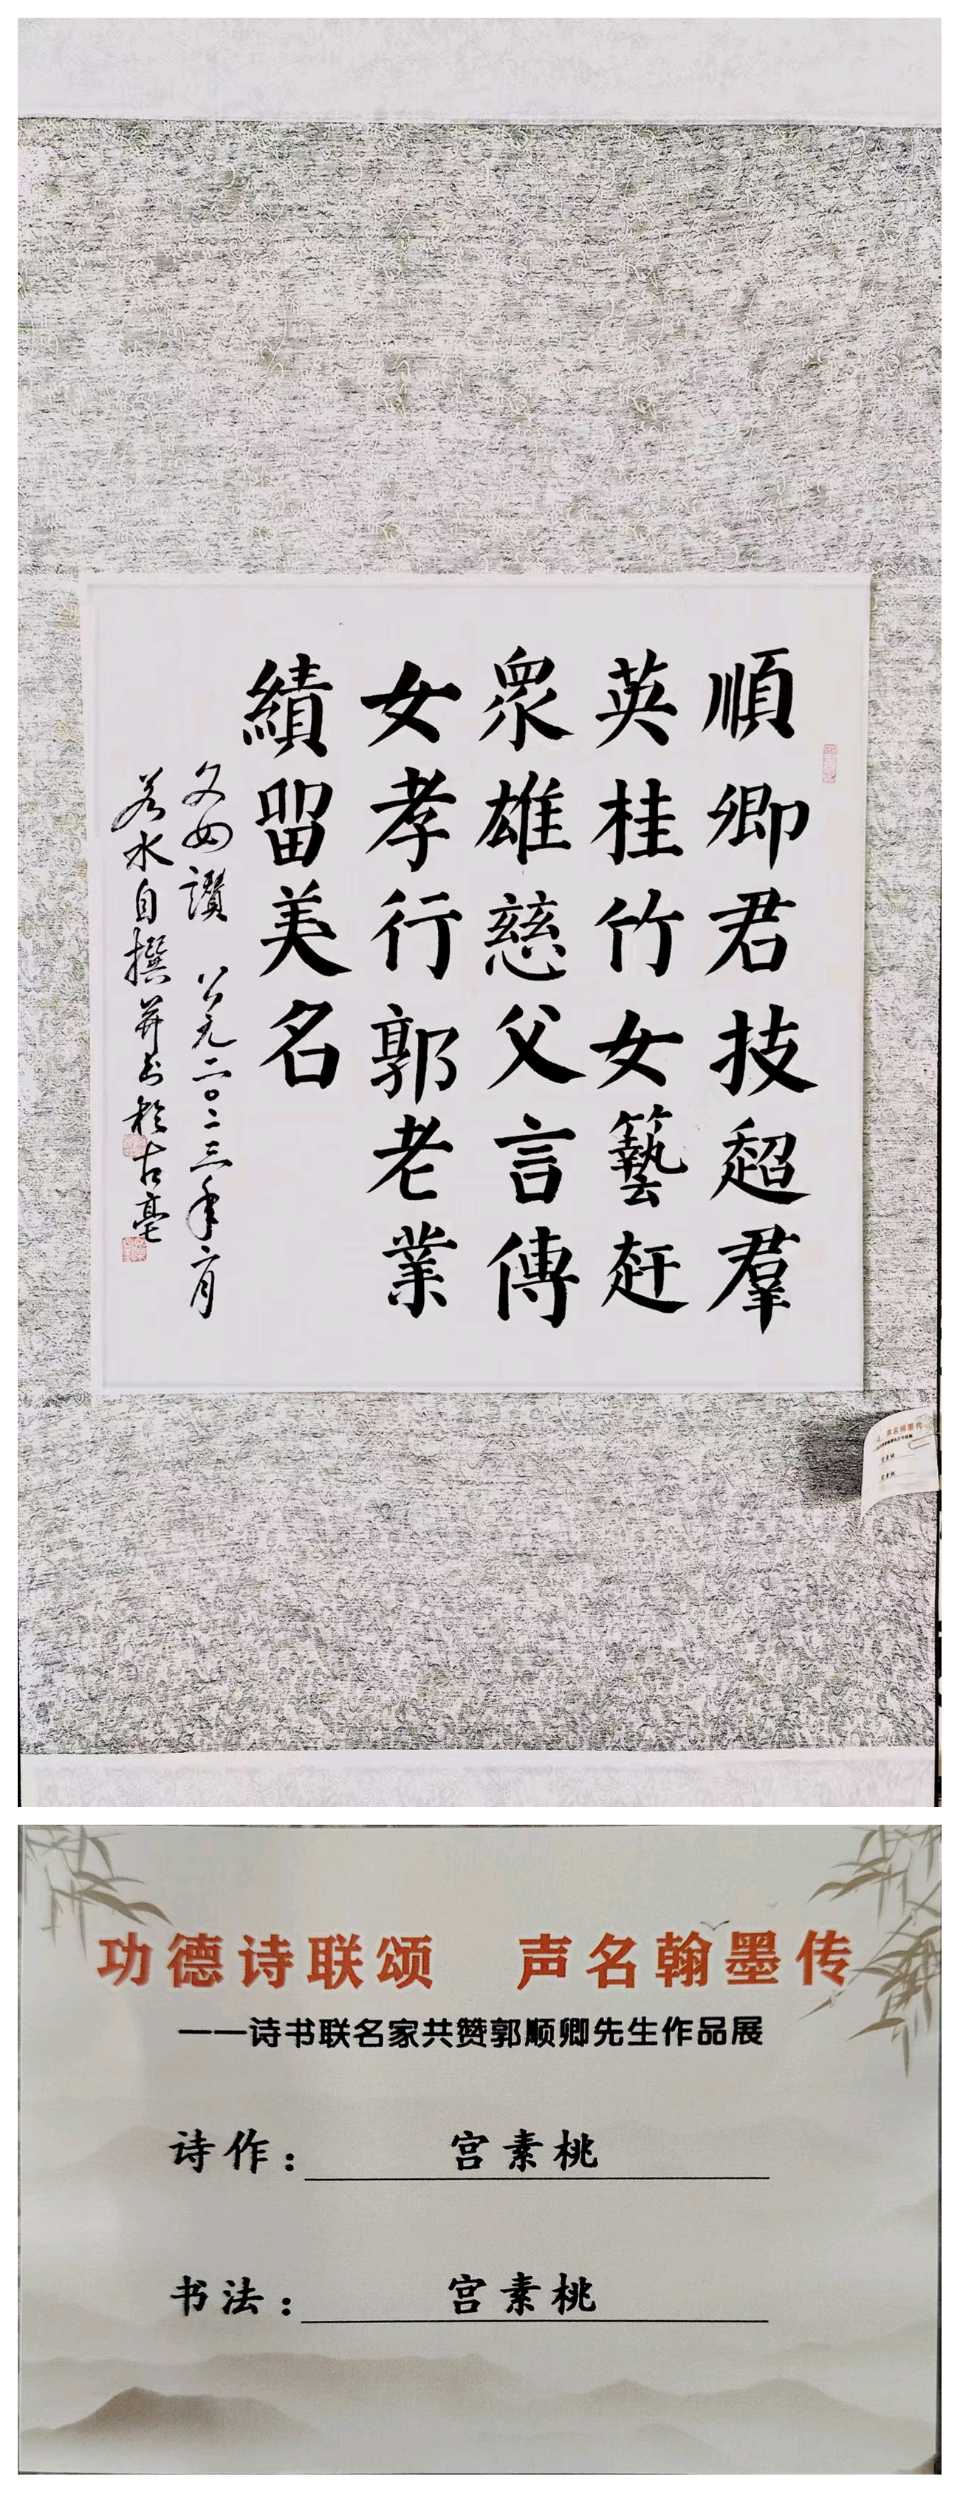 順卿君技超羣
英桂竹女藝赶
眾雄慈父言傳
女孝行郭老業
績留美名
父女讚 公元二〇二三年六月
若水自撰并书於古亳
功德诗联颂 声名翰墨传
——诗书联名家共赞郭顺卿先生作品展
诗作：宫素桃
书法：宫素桃